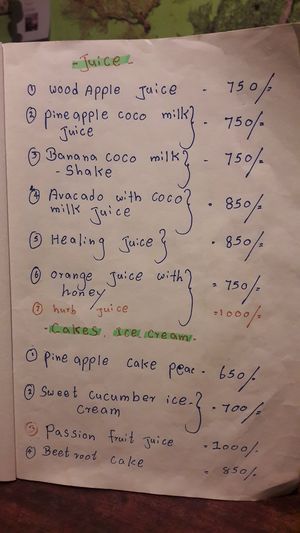 - Juice -
① wood Apple juice - 750/=
② pineapple coco milk - 750/=
juice
③ Banana coco milk - 750/=
- Shake
④ Avacado with coco = 850/=
milk juice
⑤ Healing juice = 850/=
⑥ orange juice with = 750/=
honey
⑦ hurb juice =1000/=
- Cakes, ice cream -
① pine apple cake peac - 650/.
② Sweet cucumber ice - = 700/=
cream
③ Passion fruit juice = 1000/.
④ Beet root cake = 850/.